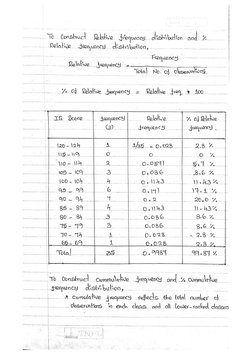 To Construct Relative frequency distribution and %
Relative frequency distribution,
Relative frequency = Frequency / Total No. of observations
% of Relative frequency = Relative freq * 100
IQ Score frequency (f) Relative frequency % of Relative frequency
120 - 124 1 1/35 = 0.028 2.8 %
115 - 119 0 0 0 %
110 - 114 2 0.0571 5.7 %
105 - 109 3 0.086 8.6 %
100 - 104 4 0.1143 11.43 %
95 - 99 6 0.171 17.1 %
90 - 94 7 0.2 20.0 %
85 - 89 4 0.1143 11.43 %
80 - 84 3 0.086 8.6 %
75 - 79 3 0.086 8.6 %
70 - 74 1 0.028 2.8 %
65 - 69 1 0.028 2.8 %
Total 35 0.9987 99.87 %
To Construct Cummulative frequency and % cummulative
frequency distribution,
* cumulative frequency reflects the total number of
observations in each class and all lower-ranked classes